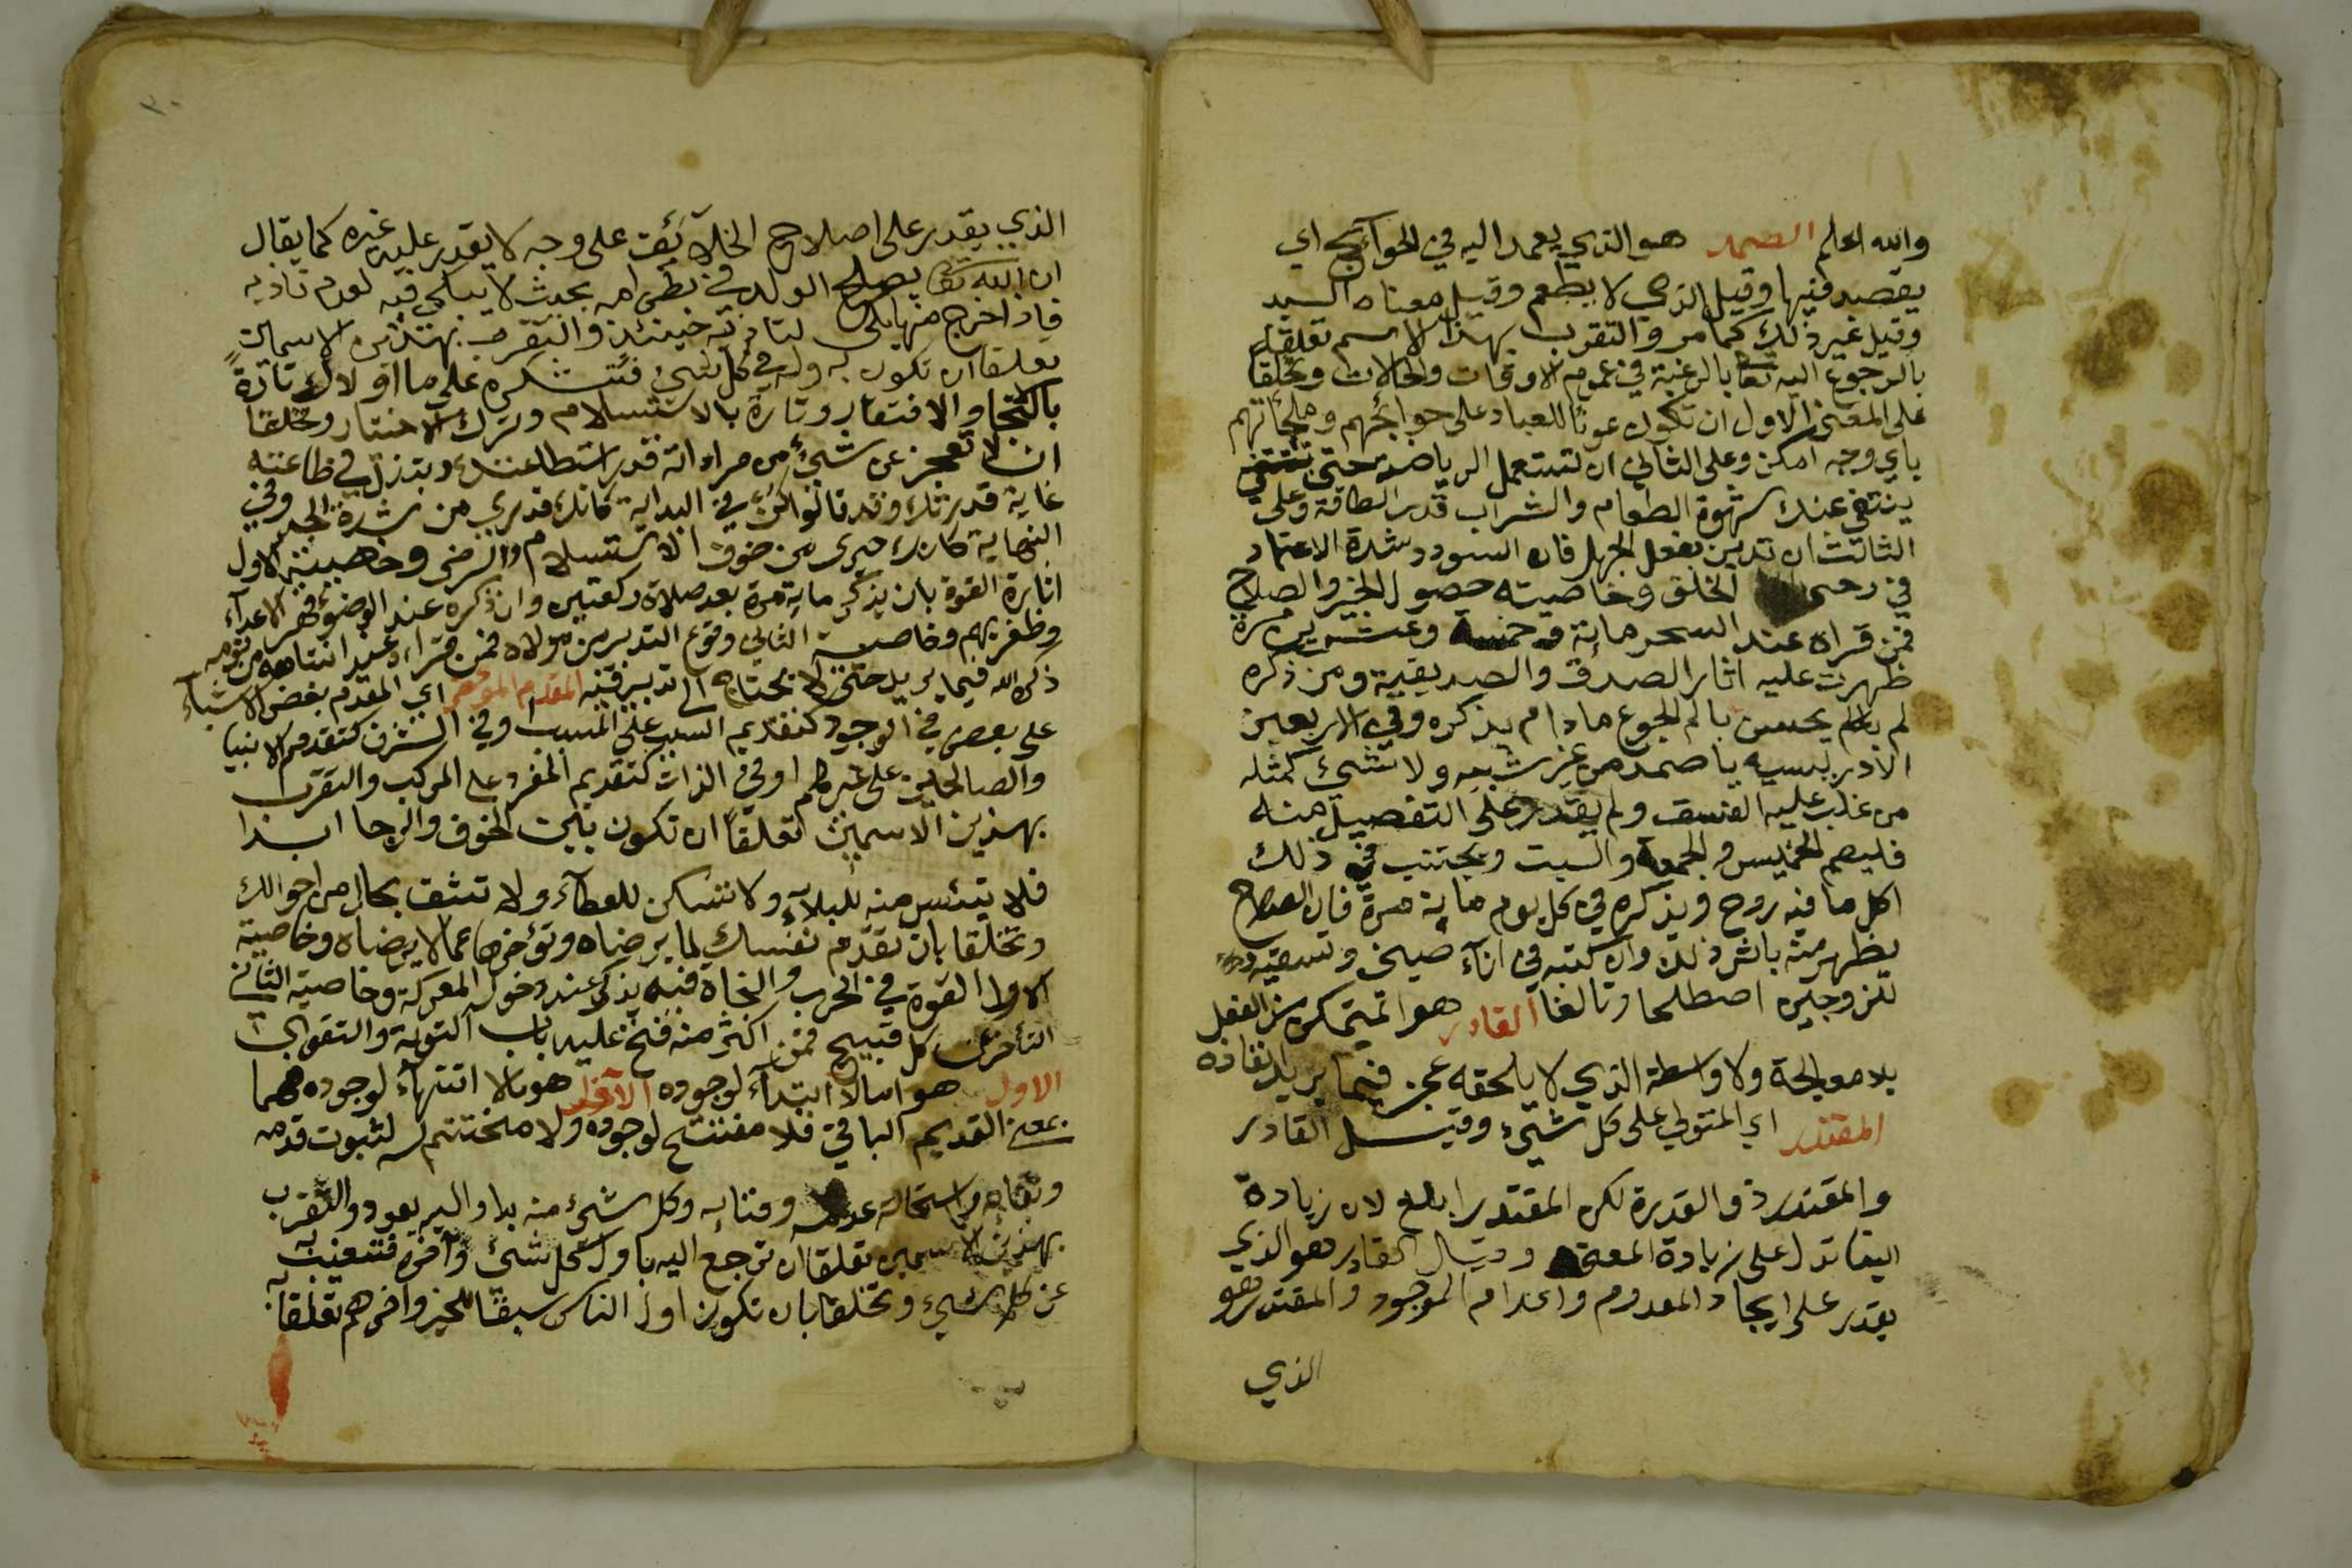 والله اعلم الصمد هو الذي يعمد اليه في الحوآئج اي
يقصد فيها وقيل الذي لا يطعم وقيل معناه السيد
وقيل غير ذلك كما مر والتقرب بهذا الاسم تعلقا
بالرجوع اليه تعا بالرغبة في عموم الاوقات والحالات وتخلقا
على المعنى الاول ان تكون عونا للعباد على حوائجهم وملجاتهم
باي وجه امكن وعلى الثاني ان تستعمل الرياضة حتى
ينتفي عنك شهوة الطعام والشراب قدر الطاقة وعلى
الثالث ان تدين بفعل الجهل فان السودد شدة الاعتماد
في الخلق وخاصيته حصول الخير والصلاح
فمن قراه عند السحر ماية وخمسة وعشرين مرة
ظهرت عليه اثار الصدق والصديقية ومن ذكره
لم يحسن بالم الجوع مادام يذكره وفي الاربعين
الادريسيه يا صمد من غير شبيه ولا شيء كمثله
من غلب عليه الفسق ولم يقدر على التفصيل منه
فليصم الخميس والجمعة والسبت ويجتنب في ذلك
اكل ما فيه روح ويذكره في كل يوم ماية مرة فان الصلاح
يظهر منه باثر ذلك وان كتبه في انآء صيني وتسقيه
للزوجين اصطلحا وتالفا القادر هو المتمكن من الفعل
بلا معالجة ولا واسطة الذي لا يلحقه عجز فيما يريد نفاده
المقتدر اي المتولي على كل شيء وقيل القادر
والمقتدر ذو القدرة لكن المقتدر ابلغ لان زيادة
البنا تدل على زيادة المعنى وقال القادر هو الذي
يقدر على ايجاد المعدوم واعدام الموجود والمقتدر هو
الذي
٣٠
الذي يقدر على اصلاح الخلآئق على وجه لا يقدر عليه غيره كما يقال
ان الله تعا يصلح الولد في بطن امه بحيث لا يبكي فيه لعدم تاذيه
فاذا خرج منها بكى لتاذيه حينئذ والتقرب بهذين الاسمين
تعلقا ان تكون به وله في كل شيء فتشكره على ما اولاك تارة
بالتجا والافتقار وتارة بالاستسلام وترك الاختيار وتخلقا
ان لا تعجز عن شيء من مراداته قدر استطاعتك وتبذل في طاعته
غاية قدرتك وقد قالوا كن في البداية كانك قدري من شدة الجد وفي
النهاية كانك جبري من خوف الاستسلام والرضى وخاصية الاول
اثارة القوة بان يذكر ماية مرة بعد صلاة ركعتين وان ذكره عند الوضوء قهر الاعدآء
وظفر بهم وخاصية الثاني وقوع التدبير من مولاه فمن قراه عند انتباهه من نومه
ذكره الله فيما يريد حتى لا يحتاج الى تدبير فيه المقدم المؤخر اي المقدم بعض الاشيآء
على بعض في الوجود كتقديم السبب على المسبب وفي الشرف كتقديم الانبيا
والصالحين على غيرهم او في الذات كتقديم المفرد على المركب والتقرب
بهذين الاسمين تعلقا ان تكون بين الخوف والرجا ابدا
فلا تيئس منه للبلآء ولا تسكن للعطآء ولا تثق بحال من احوالك
وتخلقا بان تقدم نفسك لما يرضاه وتؤخرها عما لا يرضاه وخاصية
الاول القوة في الحرب والنجاة فيه يذكر عند دخول المعركة وخاصية الثاني
التأخر عن كل قبيح فمن اكثر منه فتح عليه باب التوبة والتقوى
الاول هو لا ابتدآء لوجوده الآخر هو لا انتهآء لوجوده فهما
بمعنى القديم الباقي فلا مفتتح لوجوده ولا مختتم له لثبوت قدمه
وبقائه واستحالة عدمه وفنائه وكل شيء منه بدا واليه يعود والتقرب
بهذين الاسمين تعلقا ان ترجع اليه باول كل شيء وآخره فتغيب به
عن كل شيء وتخلقا بان تكون اول الناس سبقا للخير واخرهم تعلقا به